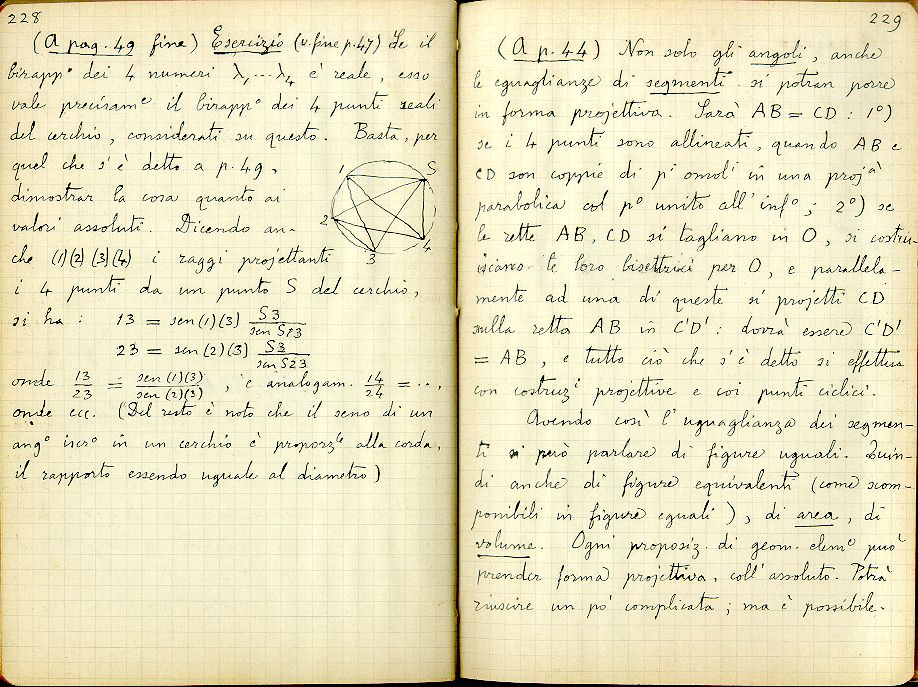 228
(A pag. 49 fine) Esercizio (v. fine p. 47) Se il
birapp° dei 4 numeri λ₁...λ₄ è reale, esso
vale precisam^e il birapp° dei 4 punti reali
del cerchio, considerati su questo. Basta, per
quel che s'è detto a p. 49,
dimostrar la cosa quanto ai
valori assoluti. Dicendo an-
che (1)(2)(3)(4) i raggi projettanti
i 4 punti da un punto S del cerchio,
si ha : 13 = sen(1)(3) S3/sen S13
23 = sen(2)(3) S3/sen S23
onde 13/23 = sen(1)(3)/sen(2)(3) , e analogam. 14/24 = ...,
onde ecc. (Del resto è noto che il seno di un
ang° iscr° in un cerchio è proporz^le alla corda,
il rapporto essendo uguale al diametro)
1
S
2
3
4
229
(A p. 44) Non solo gli angoli, anche
le eguaglianze di segmenti si potran porre
in forma projettiva. Sarà AB = CD : 1°)
se i 4 punti sono allineati, quando AB e
CD son coppie di pⁱ omolⁱ in una proj^à
parabolica col p° unito all'inf° ; 2°) se
le rette AB, CD si tagliano in O, si costru-
iscano le loro bisettrici per O, e parallela-
mente ad una di queste si projetti CD
sulla retta AB in C'D' : dovrà essere C'D'
= AB , e tutto ciò che s'è detto si effettua
con costruzⁱ projettive e coi punti ciclici.
Avendo così l'uguaglianza dei segmen-
ti si può parlare di figure uguali. Quin-
di anche di figure equivalenti (come scom-
ponibili in figure eguali), di area, di
volume. Ogni proposiz. di geom. elem^e può
prender forma projettiva, coll'assoluto. Potrà
riuscire un po' complicata ; ma è possibile.